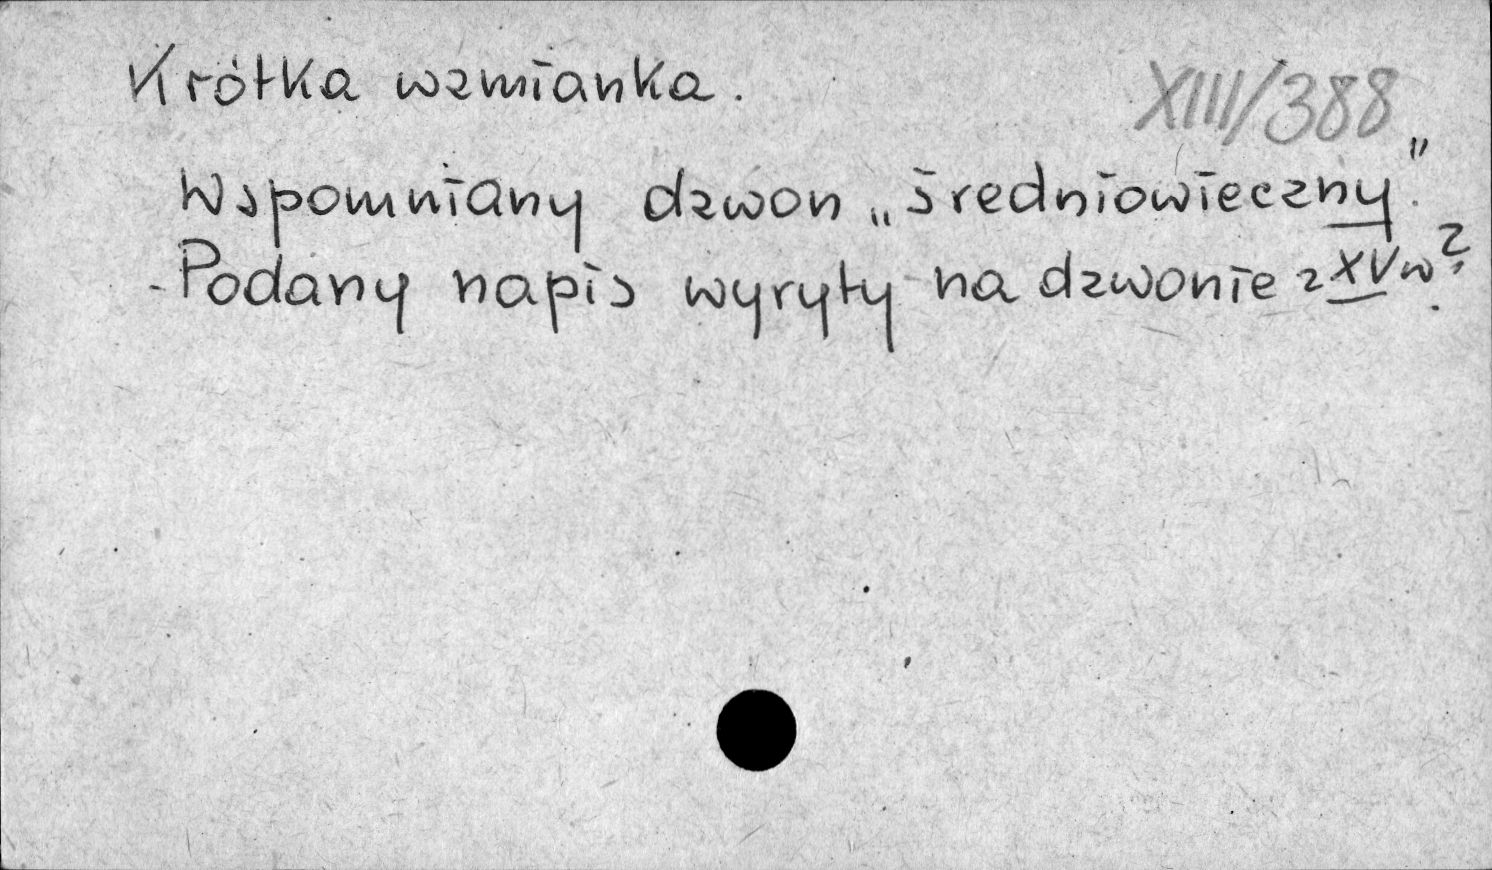 Krótka wzmianka.
XIII/388
Wspomniany dzwon „średniowieczny”.
- Podany napis wyryty na dzwonie z XV w?.